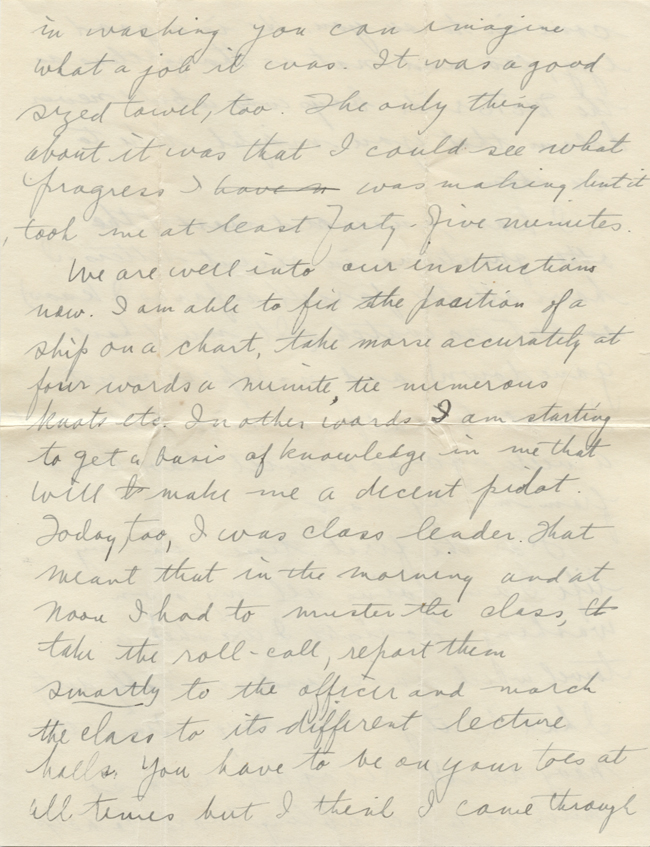 in washing you can imagine
what a job it was. It was a good
sized towel, too. The only thing
about it was that I could see what
progress I have n was making but it
took me at least forty-five minutes.
We are well into our instructions
now. I am able to fix the position of a
ship on a chart, take morse accurately at
four words a minute, tie numerous
knots etc. In other words I am starting
to get a basis of knowledge in me that
will make me a decent pidot.
Today, too, I was class leader. That
meant that in the morning and at
noon I had to muster the class,
take the roll-call, report them
smartly to the officer and march
the class to its different lecture
halls. You have to be on your toes at
all times but I think I came through